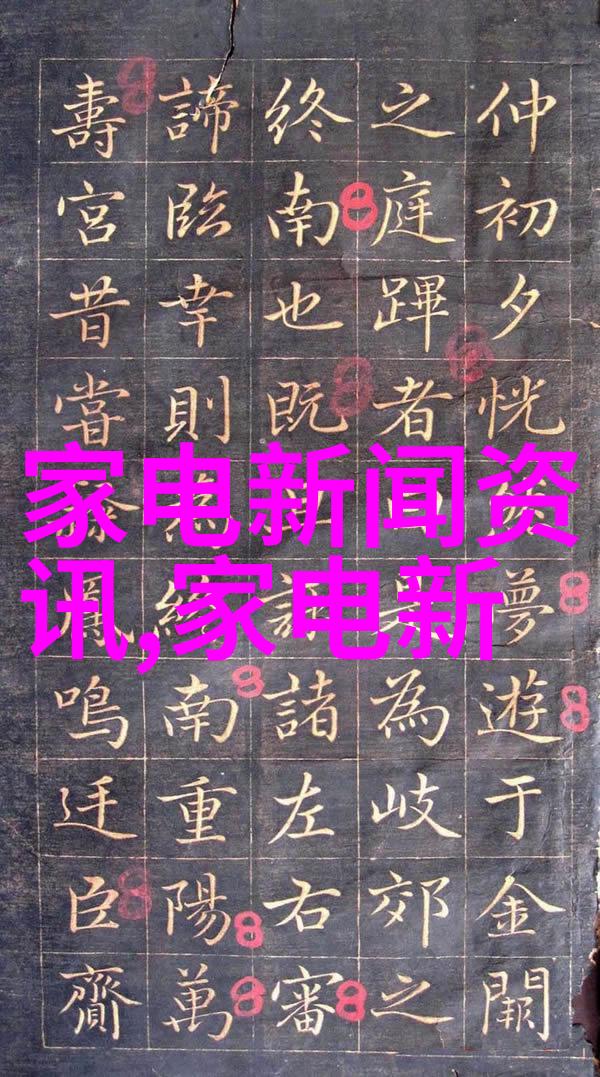 仲初夕恍夢遊于金闕
之庭蹕者為岐郊之
終南也既諸左右審
諦臨幸則為終南重陽萬
壽宮昔嘗鳳鳴迋臣齎
家电新闻资
讯,家电新